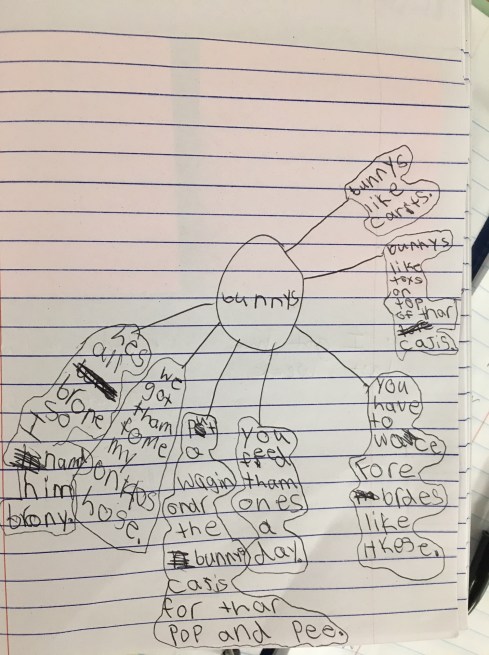 bunnys
bunnys
like
carits.
bunnys
like
toxs
on
top
of thar
cajis.
you
have
to
woce
Fore
brdes
like
Hkese.
you
feed
tham
ones
a
day.
Put
a
wagin
ondr
the
bunny
casis
for thar
pop and pee.
we
got
tham
frome
my
onktos
hose.
hes
all
brone
I so
nand
him
brony.